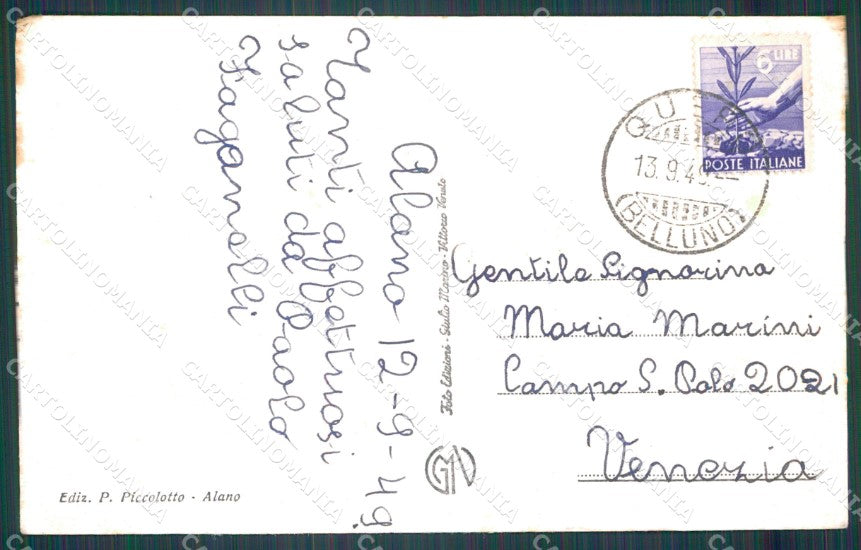 Alano 12-9-49
Tanti affettuosi
saluti da Paolo
Zaganelli
6 LIRE
POSTE ITALIANE
13.9.49
(BELLUNO)
Gentile Signorina
Maria Marini
Campo S. Polo 2021
Venezia
Foto Edizioni - Giulio Marino - Vittorio Veneto
GMV
Ediz. P. Piccolotto - Alano
CARTOLINOMANIA